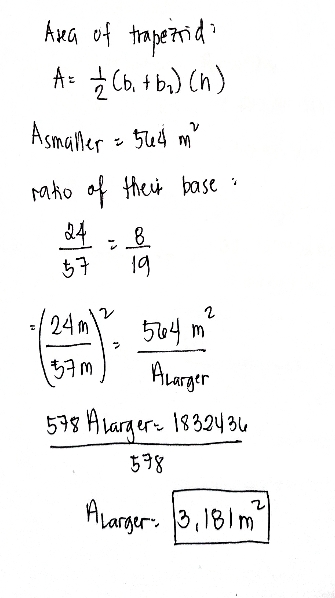 Area of trapezoid:
A = 1/2 (b₁ + b₂) (h)
Asmaller = 564 m²
ratio of their base :
24/57 = 8/19
= (24 m / 57 m)² = 564 m² / ALarger
578 ALarger = 1832436
578
ALarger = 3,181 m²